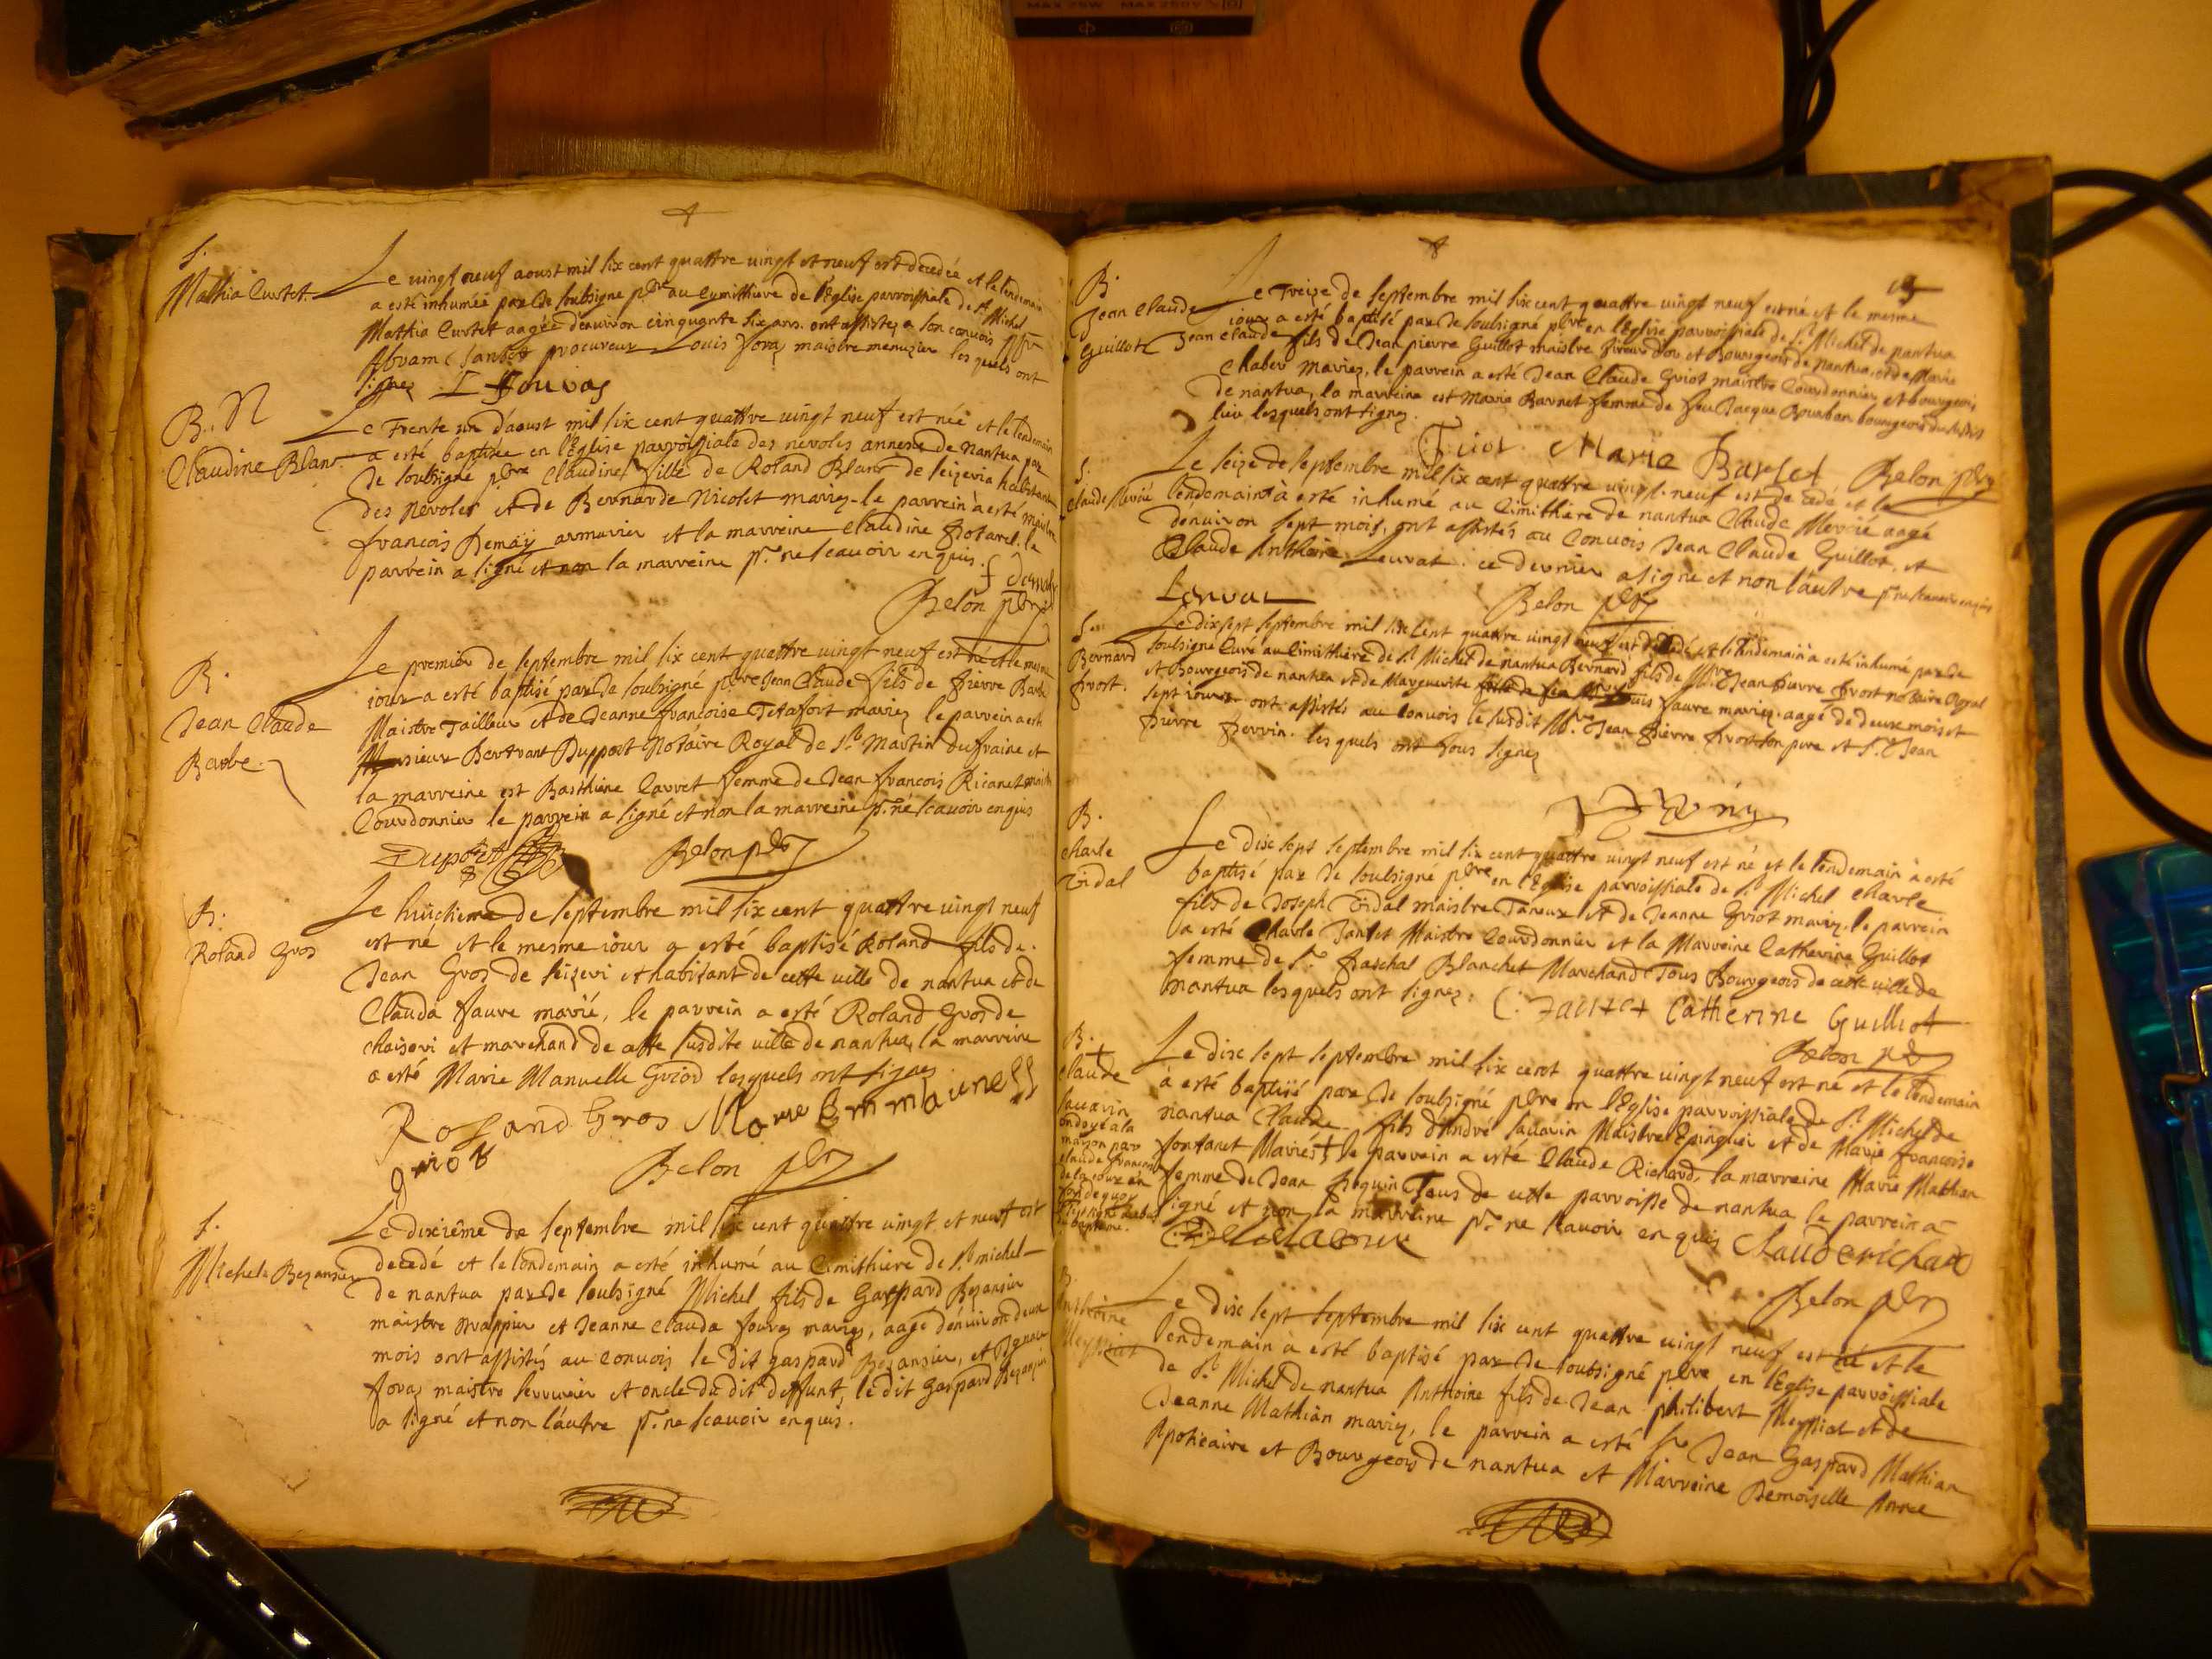 S.
Mathia Curtet
Le vingt neuf aoust mil six cent quattre vingt et neuf est decedée et le lendemain
a esté inhumée par Je soubsigne pbre au Cymithiere de l'Eglise parroissiale de St Michel
Mathia Curtet aagée d'enuiron cinquante six ans. ont assistez a son conuois
Abram procureur Louis Jouaz maistre menuzier les quels ont
signez L Jouvaz
B. N
Claudine Blanc
Le Trente un d'aoust mil six cent quattre vingt neuf est née et le lendemain
a esté baptisée en l'Eglise parroissiale des neyroles annexe de Nantua par
Je soubsigné pbre Claudine fille de Roland Blanc de leizeria habitant
des neyroles et de Bernarde Nicolet mariez. le parrein à esté maistre
francois Demay armurier et la marreine Claudine le
parrein a signé et non la marreine pr. ne scauoir enquis.
Belon pbre
B.
Jean Claude
Barbe
Le premier de septembre mil six cent quattre vingt neuf est né et le mesme
iour a esté baptisé par Je soubsigné pbre Jean Claude fils de Pierre Barbe
Maistre Tailleur et de Jeanne francoise Tetafort mariez le parrein a esté
Monsieur Bertrant Dupport Notaire Royal de St Martin du fraine et
la marreine est Basthiane Carret femme de Jean francois Ricanet maistre
Courdonnier le parrein a signé et non la marreine pr. né scauoir enquis
Duport Belon pbre
B.
Roland Gros
Le huictieme de septembre mil six cent quattre vingt neuf
est né et le mesme iour a esté baptisé Roland fils de
Jean Gros de leizeri et habitant de cette ville de nantua et de
Clauda faure marié, le parrein a esté Roland Gros de
chaisori et marchand de cette susdite ville de nantua, la marreine
a esté Marie Manuelle Guiod lesquels ont signes
Roland Gros Marie Emmanuelle
guiot
Belon pbre
S.
Michel Bezansier
Le dixième de septembre mil six cent quattre vingt et neuf est
decedé et le lendemain a esté inhumé au Cimithiere de St michel
de nantua par Je soubsigné Michel fils de Gaspard Bezansier
maistre Drappier et Jeanne Clauda Jouaz mariez, aagé d'enuiron deux
mois ont assistés au conuois le dit gaspard Bezansier, et Ignace
Jouaz maistre serrurier et oncle du dit deffunt, le dit Gaspard Bezansier
a signé et non l'autre pr. ne scauoir enquis.
B.
Jean Claude
Guillot
Le Treize de septembre mil six cent quattre vingt neuf est né et le mesme
iour a esté baptisé par Je soubsigné pbre en l'Eglise parroissiale de St Michel de nantua
Jean Claude fils de Jean pierre Guillot maistre Tireur d'or et Bourgeois de Nantua et de Marie
Chaber mariez, le parrein a esté Jean Claude Guiot maistre Courdonnier et bourgeois
de nantua, la marreine est Marie Barnet femme de feu Jacque Bourban bourgeois du susdit
lieu lesquels ont signez.
Guiot Marie Barlet Belon pbre
S.
Claude Mercié
Le seize de septembre mil six cent quattre vingt neuf est decedé et le
lendemain à esté inhumé au Cimithiere de nantua Claude Mercié aagé
d'enuiron sept mois, ont assistés au Conuois Jean Claude Guillot, et
Claude Anthoine Leuvat. ce dernier a signé et non l'autre pr. ne scauoir enquis
Leuvat Belon pbre
S.
Bernard
Prost.
Le dix sept septembre mil six cent quattre vingt neuf est decedé et le lendemain à esté inhumé par Je
soubsigné Curé au Cimithiere de St Michel de nantua Bernard fils de Mtre Jean Pierre Prost notaire Royal
et Bourgeois de nantua et de Marguerite fille de feu Louis faure mariez. aagé de deux mois et
sept iours. ont assistés au Conuois le susdit Mtre. Jean Pierre Prost son pere et Sr. Jean
Pierre Perrin. les quels ont tous signez
B.
Charle
Vidal
Le dix sept septembre mil six cent quattre vingt neuf est né et le lendemain à esté
baptisé par Je soubsigné pbre en l'Eglise parroissiale de St Michel Charle
fils de Joseph Vidal maistre Taneur et de Jeanne Guiot mariez. le parrein
a esté Charle Jantet Maistre Courdonnier et la Marreine Catherine Guillot
femme de Sr. Paschal Blanchet Marchand Tous Bourgeois de cette ville de
nantua lesquels ont signez.
C. Jantet Catherine Guilliot
Belon pbre
B. +
Claude
sauarin
ondoyé a la
maison par
claude francois
de la cour en
Le dix sept septembre mil six cent quattre vingt neuf est né et le lendemain
à esté baptisé par Je soubsigné pbre en l'Eglise parroissiale de St Michel de
nantua Claude fils d'André sauarin Maistre Epinguier et de Marie francoise
fontanet Mariés + le parrein a esté Claude Richard, la marreine Marie Mathian
femme de Jean Tous de cette parroisse de nantua le parrein a
signé et non la marreine pr. ne scauoir enquis Claude richard
Delacour
Belon pbre
B.
Anthoine
Meyniat
Le dix sept septembre mil six cent quattre vingt neuf est né et le
lendemain à esté baptisé par Je soubsigné pbre en l'Eglise parroissiale
de St Michel de nantua Anthoine fils de Jean philibert Meyniat et de
Jeanne Mathian mariez, le parrein a esté Sr Jean Gaspard Mathian
Apoticaire et Bourgeois de nantua et Marreine Demoiselle Anne